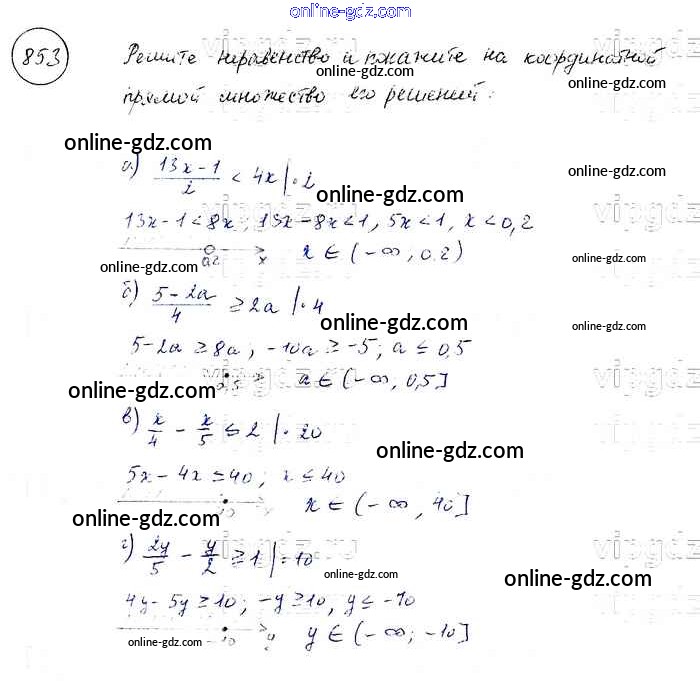 online-gdz.com
853 Решите неравенство и покажите на координатной
online-gdz.com
прямой множество его решений:
online-gdz.com
online-gdz.com
а) (13x-1)/2 < 4x |·2
online-gdz.com
13x-1<8x; 13x-8x<1, 5x<1, x<0,2
0,2 x x ∈ (-∞, 0,2)
online-gdz.com
online-gdz.com
б) (5-2a)/4 ≥ 2a |·4
online-gdz.com
online-gdz.com
5-2a ≥ 8a; -10a ≥ -5; a ≤ 0,5
a ∈ (-∞, 0,5]
online-gdz.com
в) x/4 - x/5 ≤ 2 |·20
online-gdz.com
5x-4x ≤ 40; x ≤ 40
x ∈ (-∞, 40]
online-gdz.com
г) 2y/5 - y/2 ≥ 1 |·10
online-gdz.com
online-gdz.com
4y-5y ≥ 10; -y ≥ 10, y ≤ -10
online-gdz.com
y y ∈ (-∞; -10]
online-gdz.com